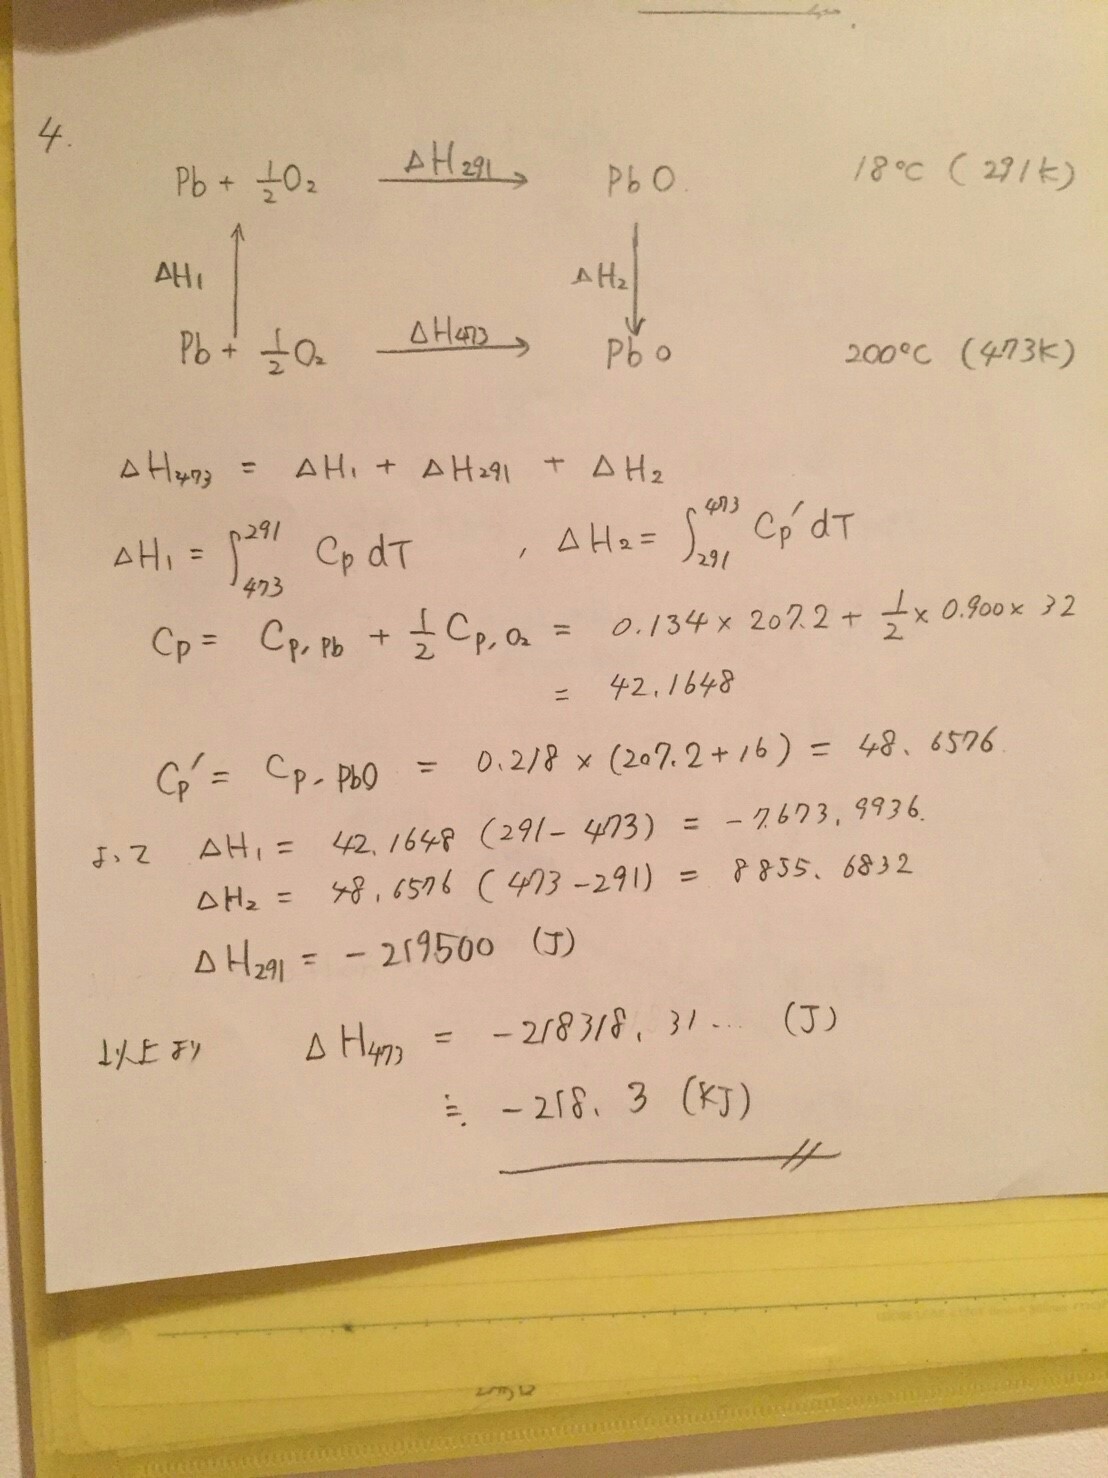 4.
Pb + 1/2 O₂ —ΔH₂₉₁→ PbO. 18℃ (291K)
ΔH₁ ↑ ΔH₂ ↓
Pb + 1/2 O₂ —ΔH₄₇₃→ PbO 200℃ (473K)
ΔH₄₇₃ = ΔH₁ + ΔH₂₉₁ + ΔH₂
ΔH₁ = ∫₄₇₃²⁹¹ Cp dT , ΔH₂ = ∫₂₉₁⁴⁷³ Cp' dT
Cp = Cp,Pb + 1/2 Cp,O₂ = 0.134 × 207.2 + 1/2 × 0.900 × 32
= 42.1648
Cp' = Cp,PbO = 0.218 × (207.2 + 16) = 48.6576
よって ΔH₁ = 42.1648 (291 - 473) = -7673.9936.
ΔH₂ = 48.6576 (473 - 291) = 8855.6832
ΔH₂₉₁ = -219500 (J)
以上より ΔH₄₇₃ = -218318.31... (J)
≒ -218.3 (KJ)